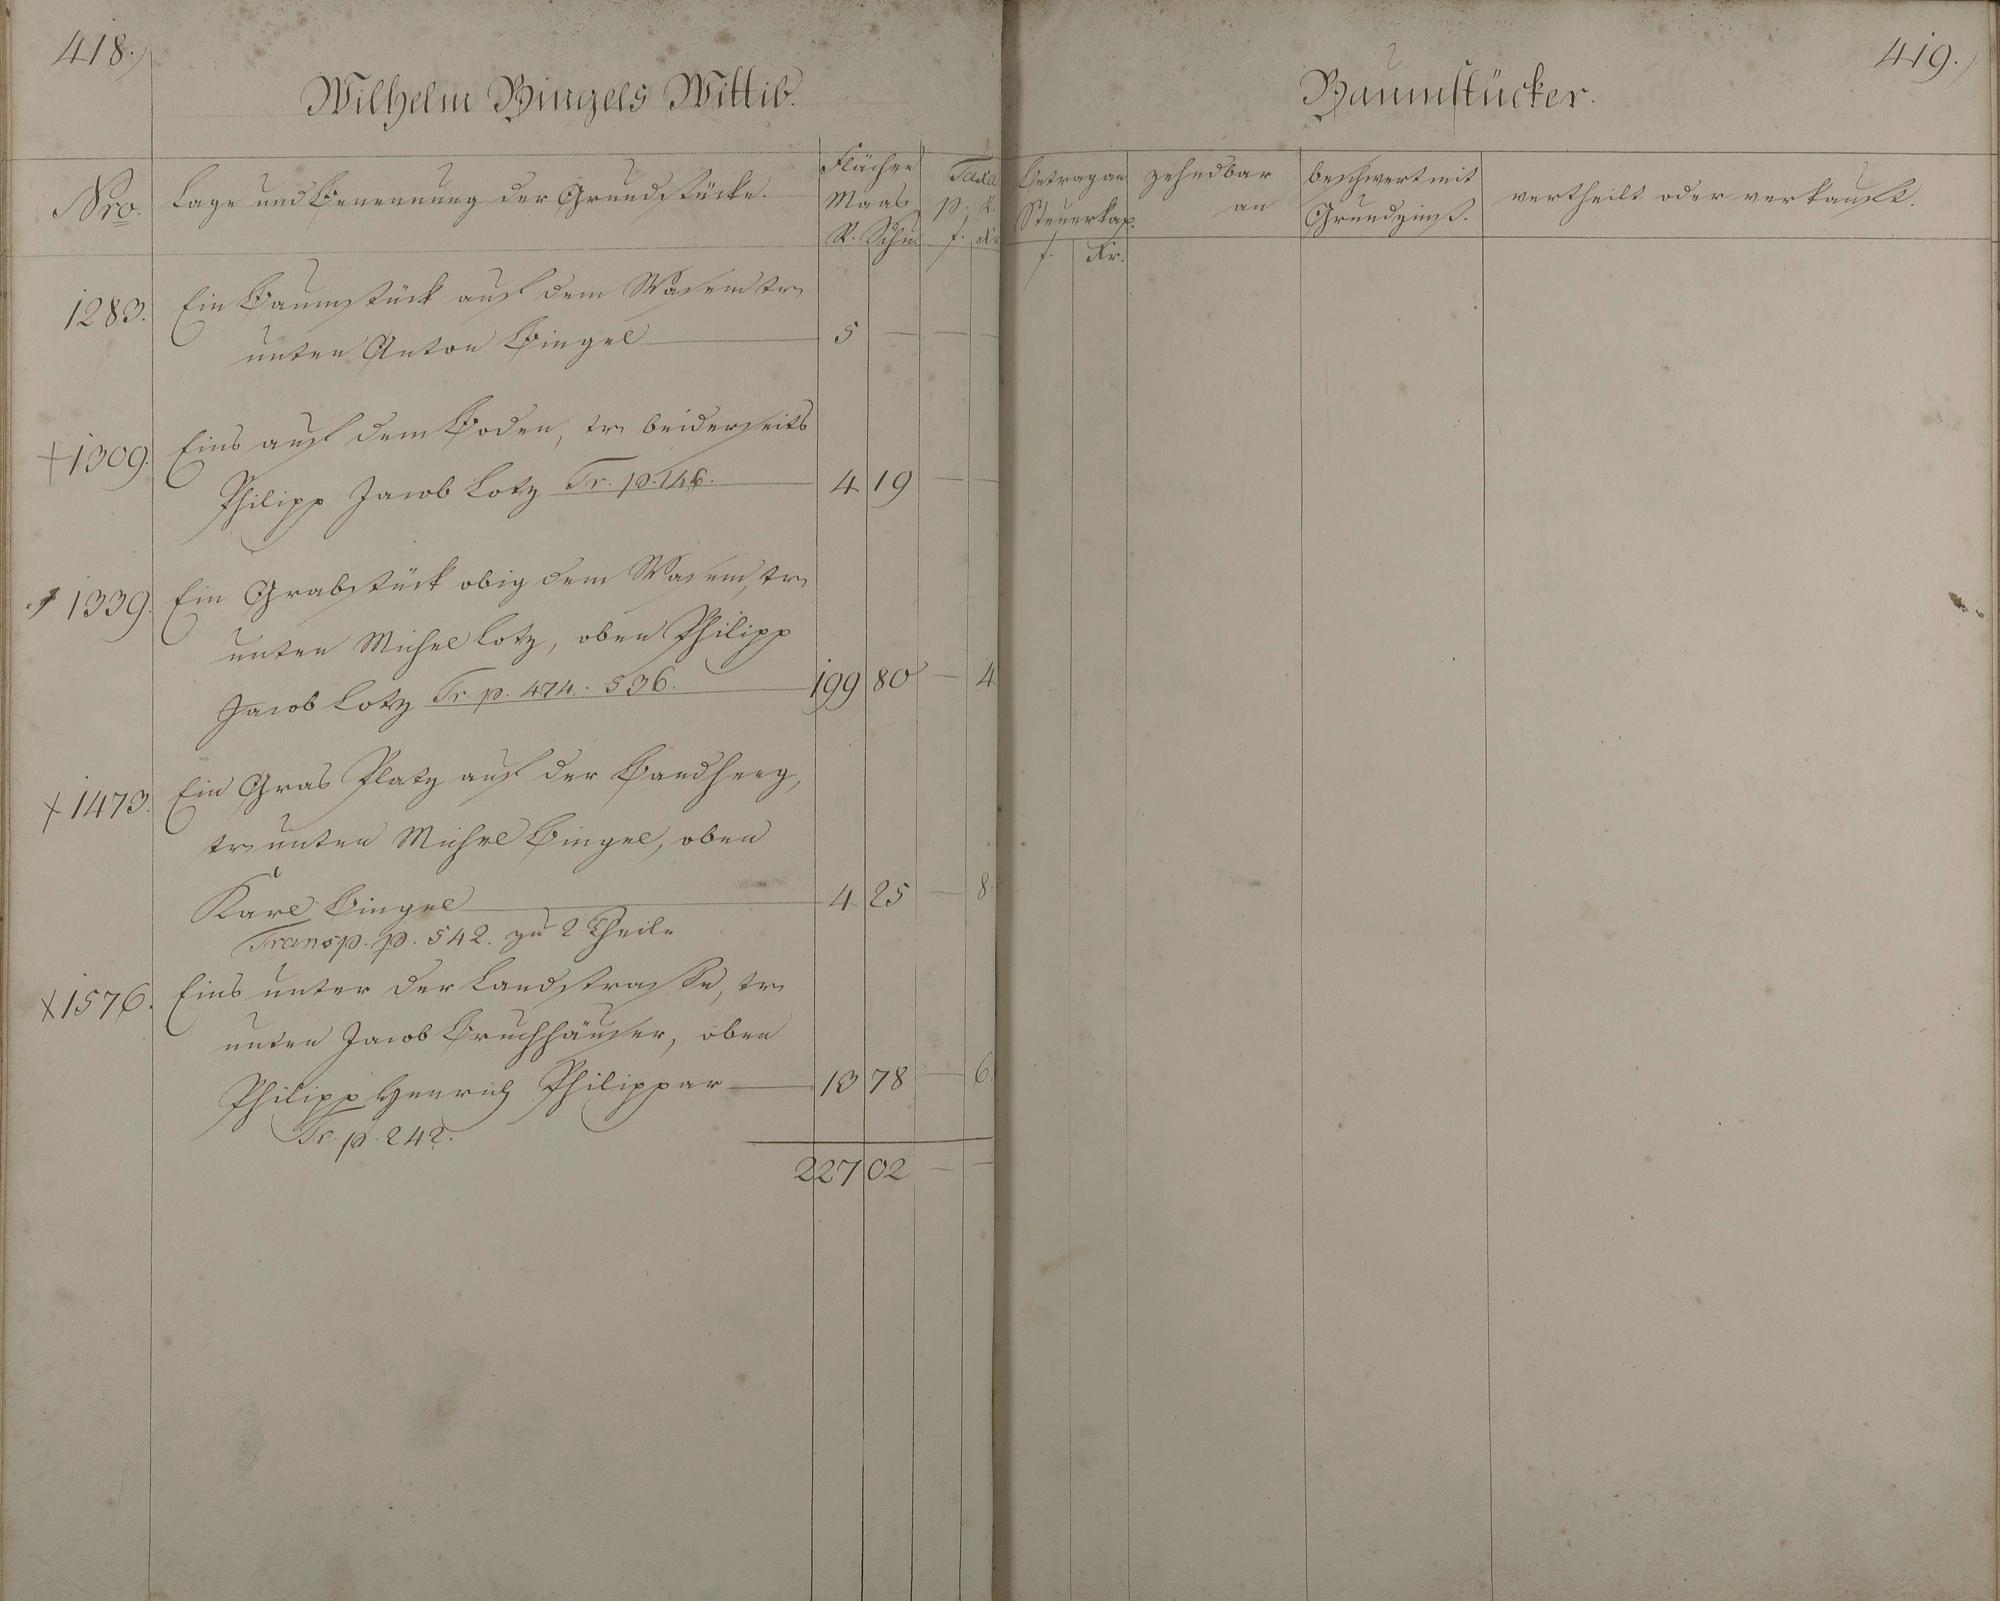 418.
Wilhelm Bingels Wittib.
Nro.
Lage und Benennung der Grundstücke.
Flächen
Maas
R. Schu
Taxa
p. R.
f. Kr
1283. Ein Baumstück auf dem Wasem tr
unten Anton Bingel 5 — — —
+1309. Eins auf dem Boden, tr beiderseits
Philipp Jacob Lotz Tr. p. 146. 4 19 — —
1339. Ein Grabstück obig dem Wasem, tr
unten Michel Lotz, oben Philipp
Jacob Lotz Tr. p. 474. 536. 199 80 — 4
+1473. Ein Gras Platz auf der Sandheeg,
tr unten Michel Bingel, oben
Karl Bingel 4 25 — 8.
Transp. p. 542. zu 2 Theile
+1576. Eins unter der Landstrasse, tr
unten Jacob Bruchhäuser, oben
Philipp Henrich Philippar 13 78 — 6.
Tr. p. 242.
227 02 — —
419.
Baumstücker.
Betrag an
Steuerkap.
f. Kr.
zehndbar
an
beschwert mit
Grundzinß.
vertheilt oder verkauft.